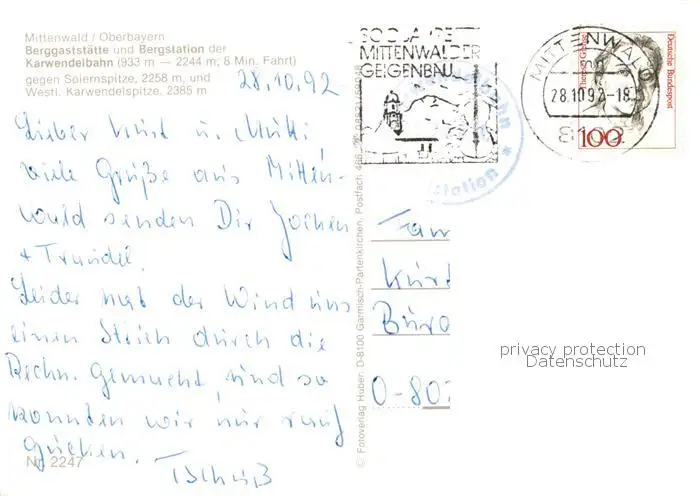 Mittenwald / Oberbayern
Berggaststätte und Bergstation der
Karwendelbahn (933 m — 2244 m; 8 Min. Fahrt)
gegen Soiernspitze, 2258 m, und
Westl. Karwendelspitze, 2385 m
28.10.92
Lieber Kurt u. Mutti,
viele Grüße aus Mitten-
wald senden Dir Jochen
+ Traudel.
Leider hat der Wind uns
einen Strich durch die
Rechn. gemacht, und so
konnten wir nur rauf
gucken.
Tschüß
Nr. 2247
© Fotoverlag Huber, D-8100 Garmisch-Partenkirchen, Postfach 466
300 JAHRE
MITTENWALDER
GEIGENBAU
station
MITTENWALD
28.10.92-18
8102
Deutsche Bundespost
Therese Giehse
100
Fam
Kurt
Büro
O-80
privacy protection
Datenschutz